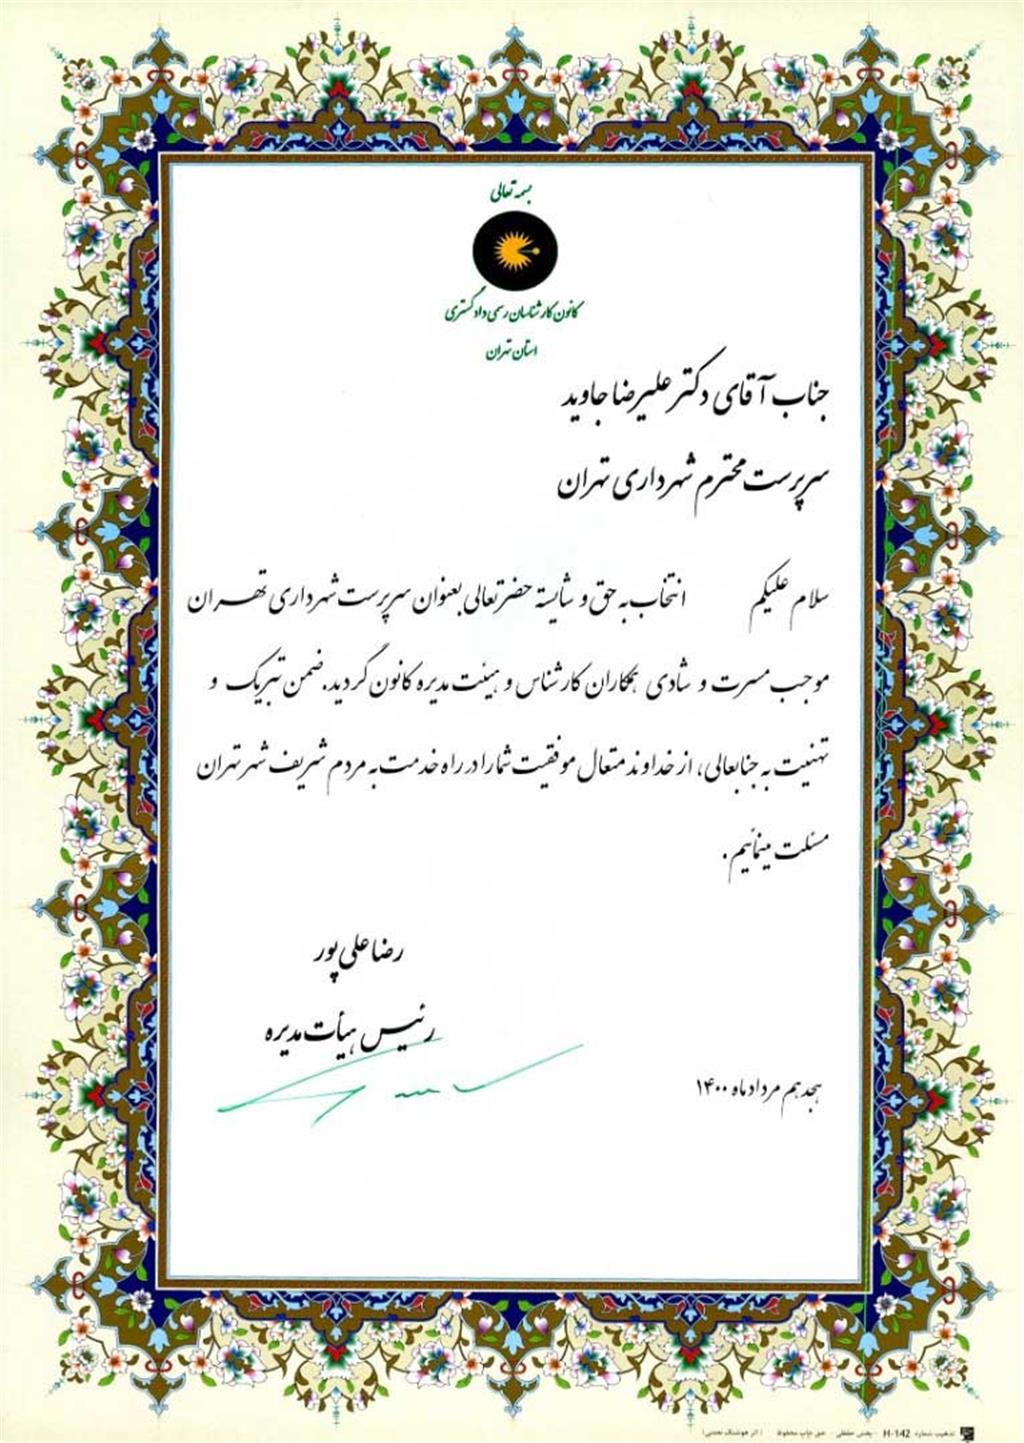 بسمه تعالی
کانون کارشناسان رسمی دادگستری
استان تهران
جناب آقای دکتر علیرضا جاوید
سرپرست محترم شهرداری تهران
سلام علیکم انتخاب به حق و شایسته حضرتعالی بعنوان سرپرست شهرداری تهران
موجب مسرت و شادی همکاران کارشناس و هیئت مدیره کانون گردید. ضمن تبریک و
تهنیت به جنابعالی، از خداوند متعال موفقیت شما را در راه خدمت به مردم شریف شهر تهران
مسئلت مینمائیم.
رضا علی پور
رئیس هیأت مدیره
هجدهم مرداد ماه ۱۴۰۰
تذهیب شماره H-142 - پخش حقیقی - حق چاپ محفوظ